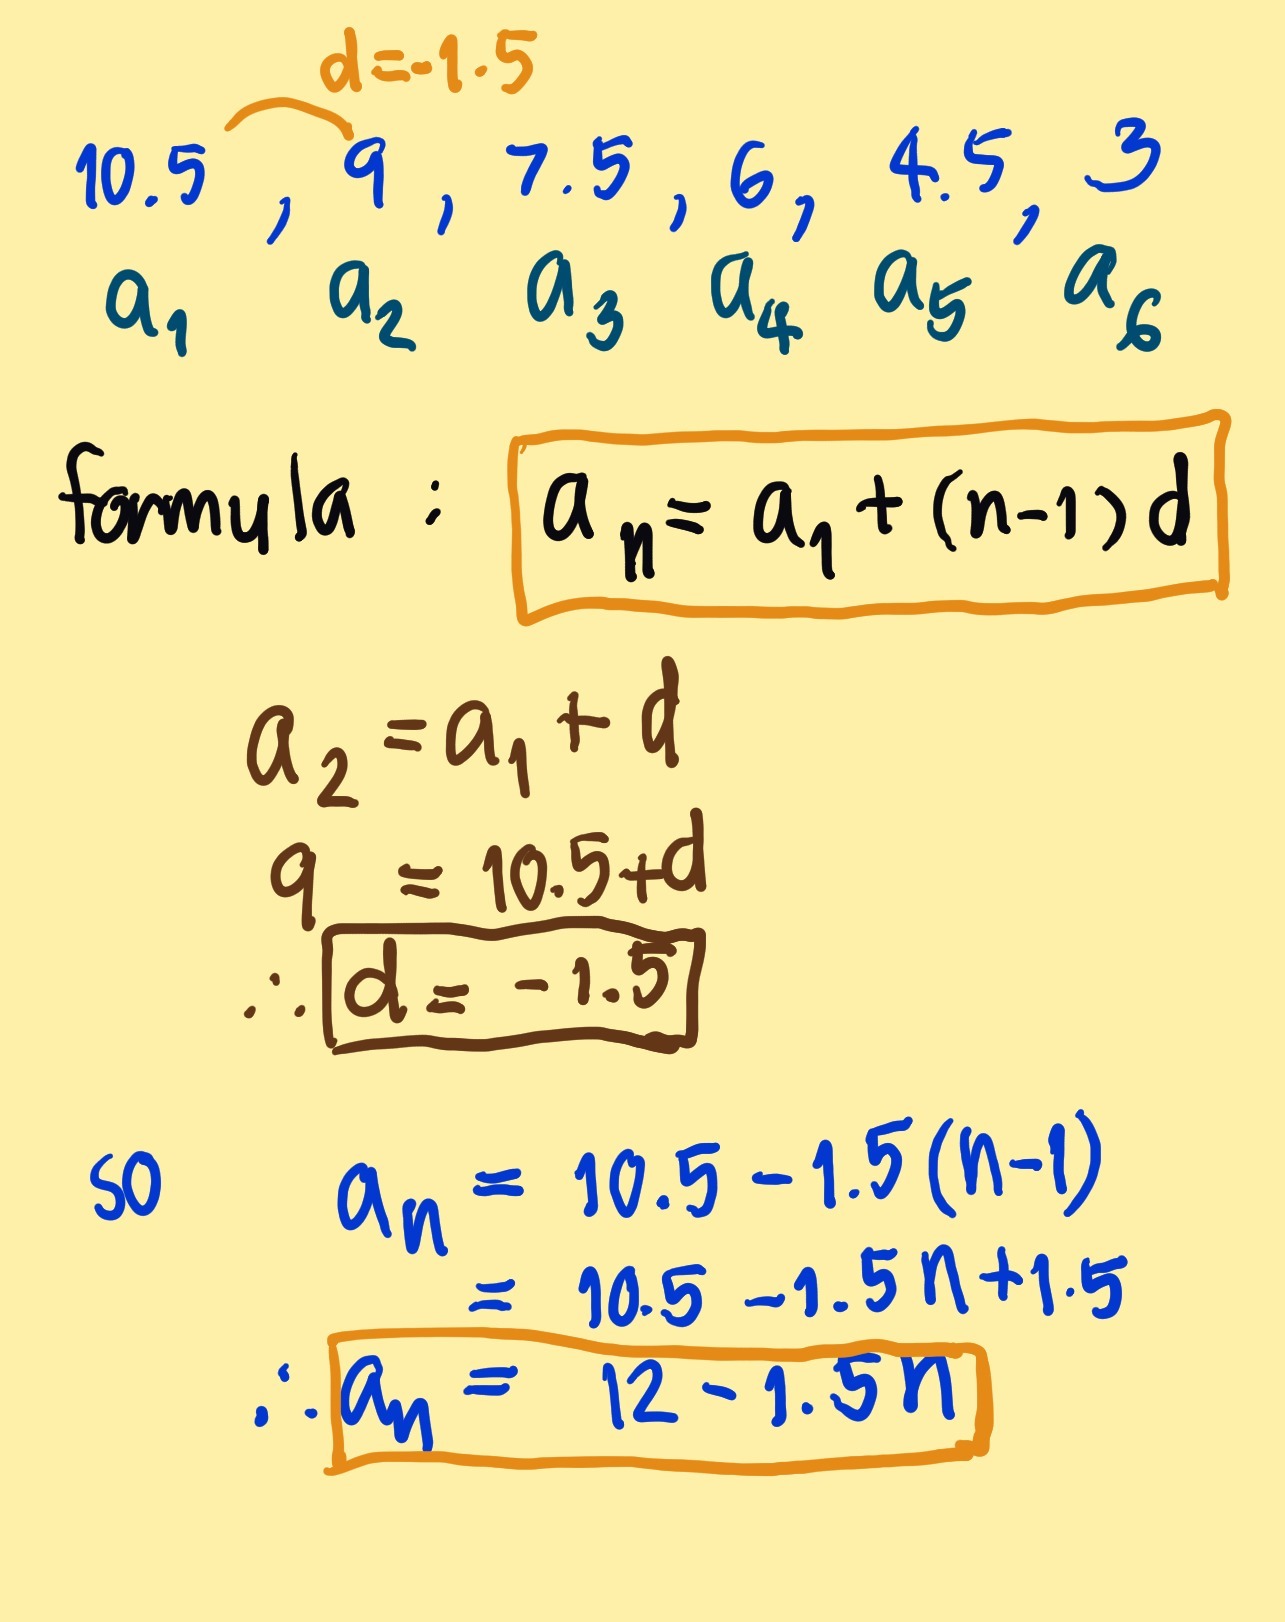 d=-1.5
10.5 , 9 , 7.5 , 6 , 4.5 , 3
a₁ a₂ a₃ a₄ a₅ a₆
formula : aₙ = a₁ + (n-1) d
a₂ = a₁ + d
9 = 10.5+d
∴ d = -1.5
so aₙ = 10.5 - 1.5 (n-1)
= 10.5 - 1.5 n + 1.5
∴ aₙ = 12 - 1.5 n